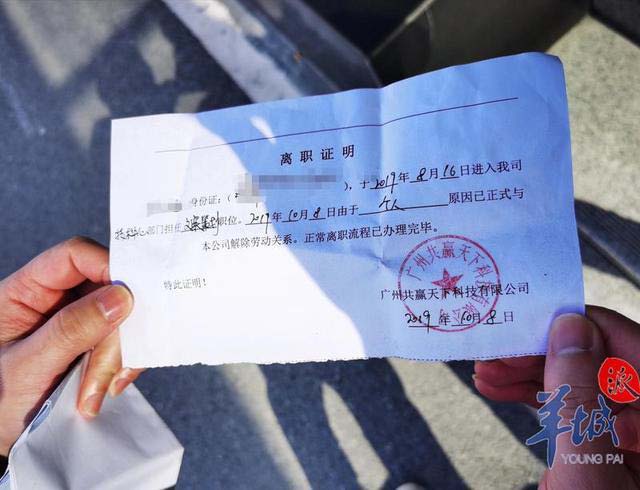 离职证明
身份证：(
)，于2019年8月16日进入我司
部门担任
职位。2019年10月8日由于个人原因已正式与
本公司解除劳动关系。正常离职流程已办理完毕。
特此证明！
广州共赢天下科技有限公司
广州共赢天下科技有限公司
2019年10月8日
羊城派
YOUNG PAI